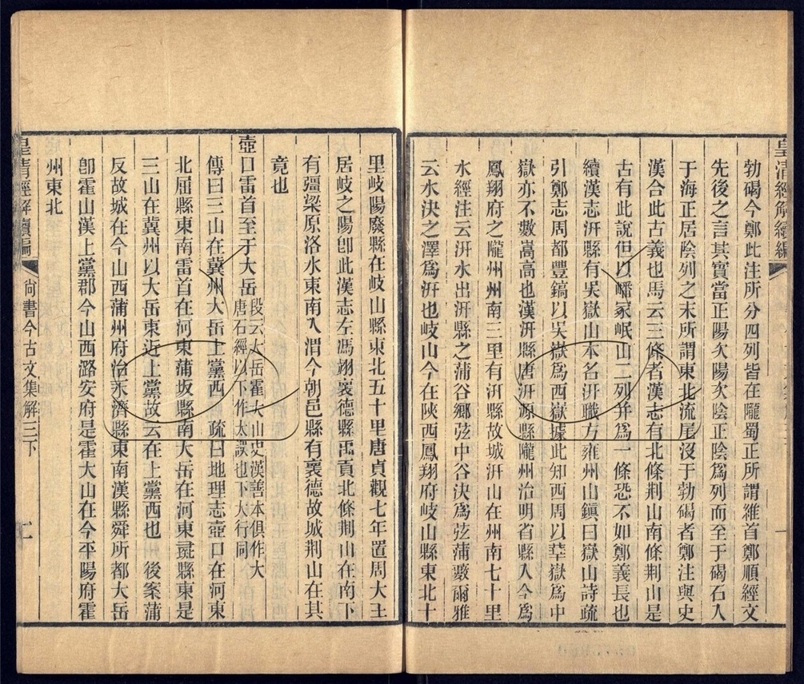 皇清經解續編
勃碣今鄭此注所分四列皆在隴蜀正所謂維首鄭順經文
先後之言其實當正陽次陽次陰正陰爲列而至于碣石入
于海正居陰列之末所謂東北流尾沒于勃碣者鄭注與史
漢合此古義也馬云三條者漢志有北條荆山南條荆山是
古有此說但以嶓冢岷山二列并爲一條恐不如鄭義長也
續漢志汧縣有吳嶽山本名汧職方雍州山鎭曰嶽山詩疏
引鄭志周都豐鎬以吳嶽爲西嶽據此知西周以華嶽爲中
嶽亦不數嵩高也漢汧縣唐汧源縣隴州治明省縣入今爲
鳳翔府之隴州州南三里有汧縣故城汧山在州南七十里
水經注云汧水出汧縣之蒲谷鄉弦中谷決爲弦蒲藪爾雅
云水決之澤爲汧也岐山今在陝西鳳翔府岐山縣東北十
里岐陽廢縣在岐山縣東北五十里唐貞觀七年置周大王
居岐之陽卽此漢志左馮翊褱德縣禹貢北條荆山在南下
有彊梁原洛水東南入渭今朝邑縣有褱德故城荆山在其
竟也
壺口雷首至于大岳
段云大岳霍大山史漢善本俱作大
唐石經以下作太誤也下大行同
傳曰三山在冀州大岳上黨西 疏曰地理志壺口在河東
北屈縣東南雷首在河東蒲坂縣南大岳在河東彘縣東是
三山在冀州以大岳東近上黨故云在上黨西也 後案蒲
反故城在今山西蒲州府治永濟縣東南漢縣舜所都大岳
卽霍山漢上黨郡今山西潞安府是霍大山在今平陽府霍
州東北
皇清經解續編
尚書今古文集解三下